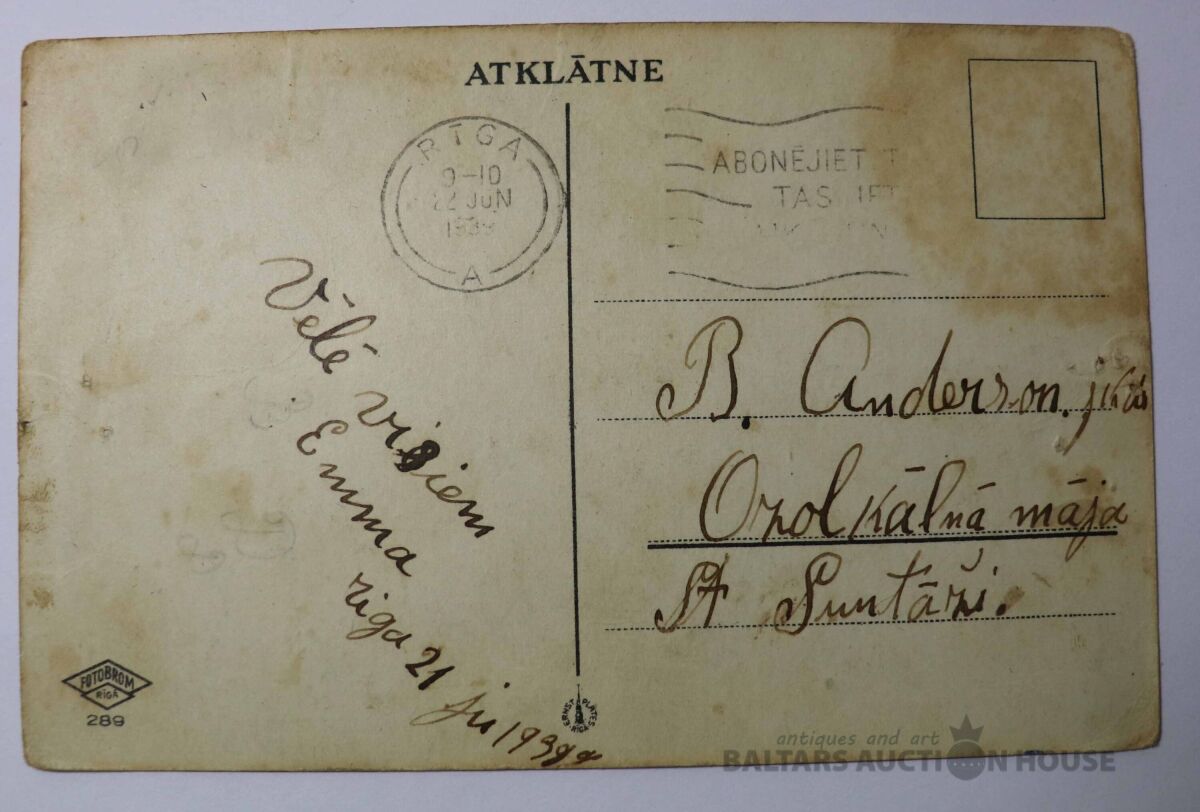 ATKLĀTNE
RĪGA
9-10
22 JUN
1939
A
ABONĒJIET
TAS
Vēlē visiem
Emma
riga 21 ju 1939 g
B. Anderson. jkdz
Ozolkālnā māja
St Suntāži.
FOTOBROM
RIGĀ
289
ERNSA PLATES
RĪGĀ
antiques and art
BALTARS AUCTION HOUSE